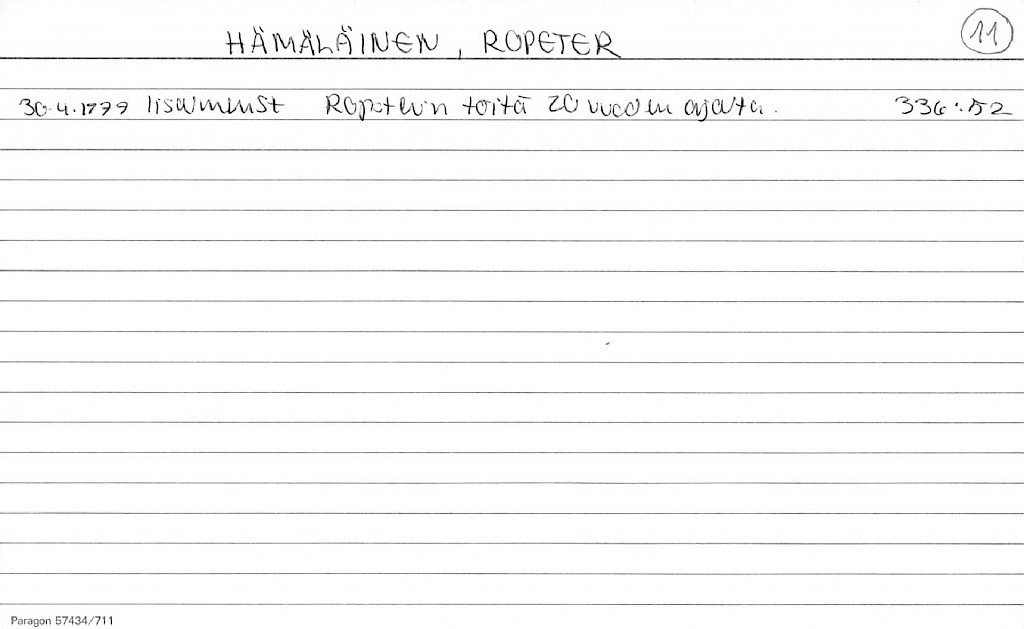 HÄMÄLÄINEN, ROPETER 11
30.4.1979 Iisalmenst Ropeterin töitä 20 vuoden ajalta. 336:52
Paragon 57434/711